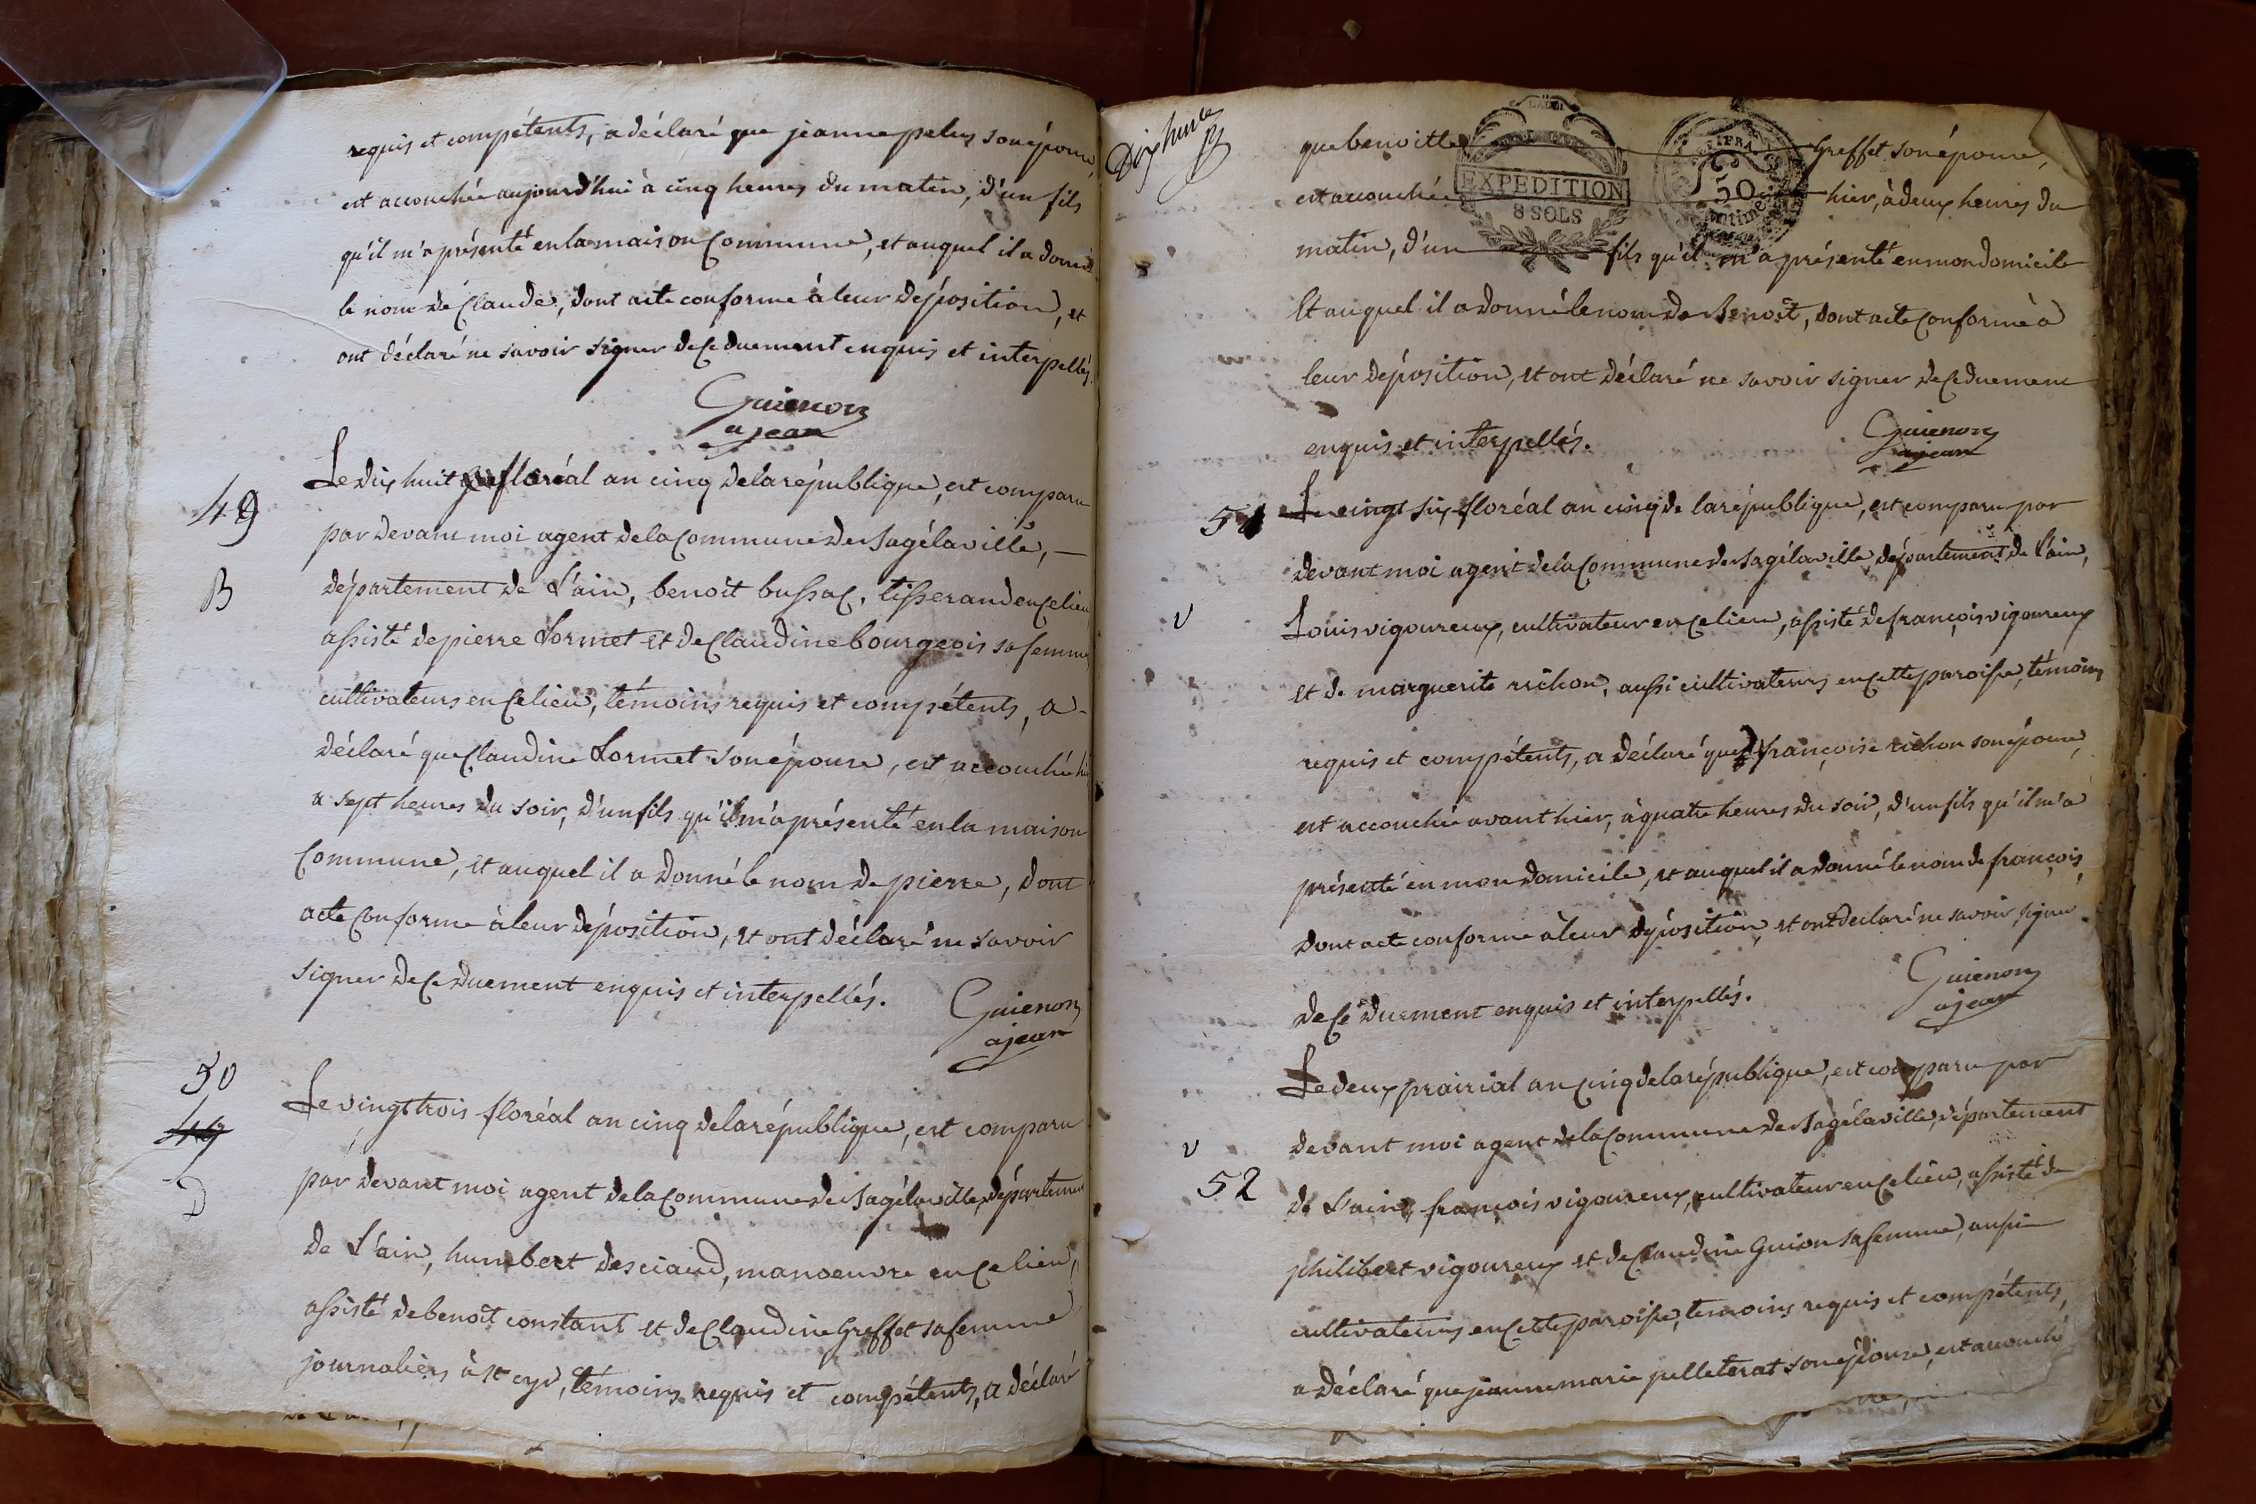 requis et compétents, a déclaré que jeanne peluy son épouse,
est accouchée aujourd'hui à cinq heures du matin, d'un fils
qu'il m'a présenté en la maison Commune, et auquel il a donné
le nom de Claude, dont acte conforme à leur déposition, et
ont déclaré ne savoir signer de ce duement enquis et interpellés.
Guienon
ajean
49
B
Le dix huit floréal an cinq de la république, est comparu
par devant moi agent de la Commune de Bagélaville, —
département de L'ain, benoit bussac, tisserand en ce lieu
assisté de pierre Lormet et de Claudine bourgeois sa femme
cultivateurs en ce lieu, témoins requis et compétents, a
déclaré que Claudine Lormet son épouse, est accouchée hier
a sept heures du soir, d'un fils qu'il m'a présenté en la maison
Commune, et auquel il a donné le nom de pierre, dont
acte Conforme à leur déposition, et ont déclaré ne savoir
signer de ce duement enquis et interpellés.
Guienon
ajean
50
49
D
Le vingt trois floréal an cinq de la république, est comparu
par devant moi agent de la Commune de Bagélaville, département
de L'ain, humbert desciaud, manoeuvre en ce lieu,
assisté de benoit constant et de Claudine Greffet sa femme
journaliers à st cyr, témoins requis et compétents, a déclaré
Dix huit
que benoitte Greffet son épouse,
EXPEDITION
8 SOLS
50
centimes
est accouchée hier, à deux heures du
matin, d'un fils qu'il m'a présenté en mon domicile
Et auquel il a donné le nom de Benoit, dont acte Conforme à
leur déposition, et ont déclaré ne savoir signer de ce duement
enquis et interpellés.
Guienon
ajean
51
V
Le vingt six floréal an cinq de la république, est comparu par
devant moi agent de la Commune de Bagélaville département de L'ain,
Louis vigoureux, cultivateur en ce lieu, assisté de françois vigoureux
et de marguerite richon, aussi cultivateurs en cette paroisse, témoins
requis et compétents, a déclaré que françoise richon son épouse,
est accouchée avant hier, à quatre heures du soir, d'un fils qu'il m'a
présenté en mon domicile, et auquel il a donné le nom de françois,
dont acte conforme à leur déposition, et ont declaré ne savoir signer
de ce duement enquis et interpellés.
Guienon
ajean
V
52
Le deux prairial an cinq de la république, est comparu par
devant moi agent de la Commune de Bagélaville, département
de L'ain, françois vigoureux, cultivateur en ce lieu, assisté de
philibert vigoureux et de Claudine Guion sa femme, aussi
cultivateurs en cette paroisse, temoins requis et compétents,
a déclaré que jeanne marie pelleterat son épouse, est accouché